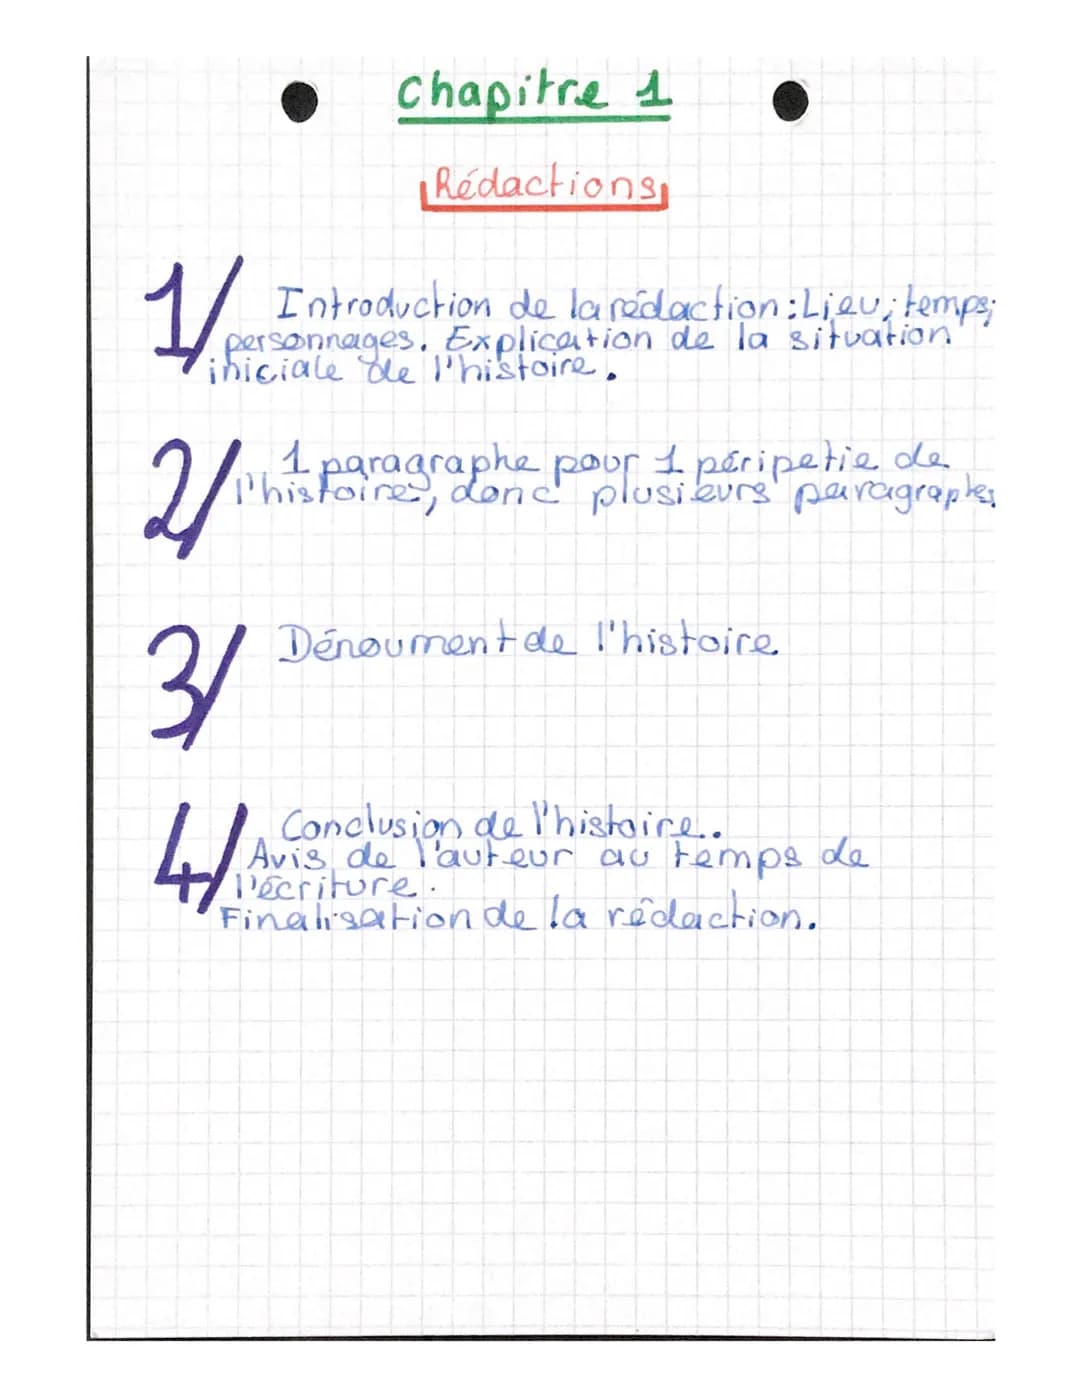 Chapitre 1
Rédactions
1/ Introduction de la rédaction : Lieu ; temps ;
personnages. Explication de la situation
iniciale de l'histoire.
2/ 1 paragraphe pour 1 péripetie de
l'histoire, donc plusieurs paragraphes
3/ Dénoument de l'histoire
4/ Conclusion de l'histoire.
Avis de l'auteur au temps de
l'écriture.
Finalisation de la rédaction.